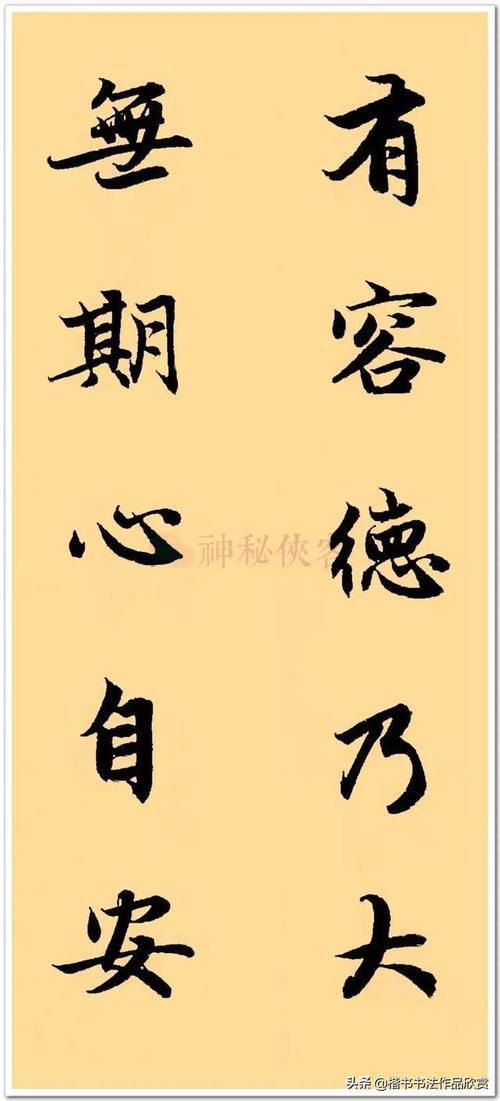 有容德乃大
無期心自安
神秘俠客
头条 @楷书书法作品欣赏